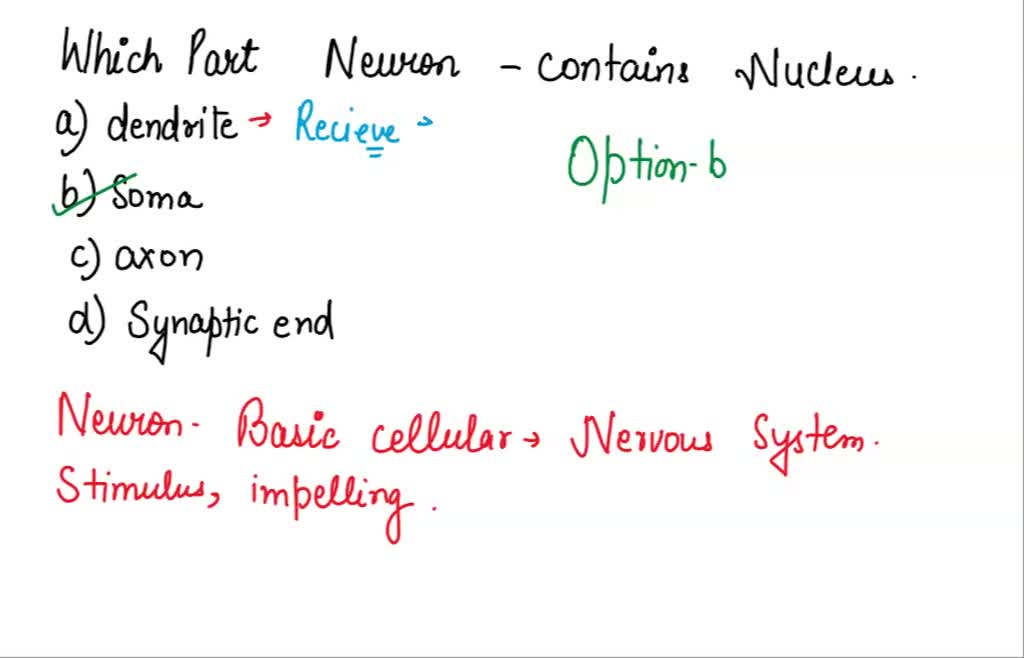 Which Part Neuron - contains Nucleus.
a) dendrite → Recieve →
Option-b
b) Soma
c) axon
d) Synaptic end
Neuron- Basic cellular → Nervous System.
Stimulus, impelling.